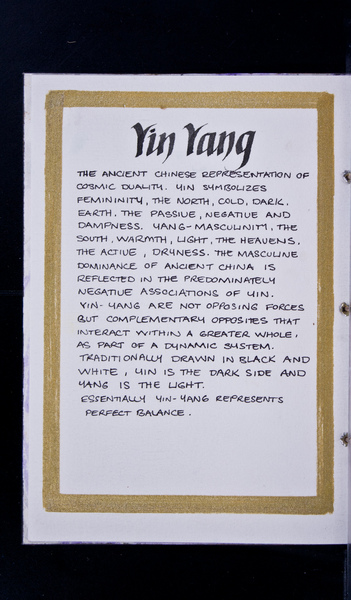 Yin Yang
THE ANCIENT CHINESE REPRESENTATION OF
COSMIC DUALITY. YIN SYMBOLIZES
FEMININITY, THE NORTH, COLD, DARK.
EARTH. THE PASSIVE, NEGATIVE AND
DAMPNESS. YANG-MASCULINITY. THE
SOUTH, WARMTH, LIGHT, THE HEAVENS.
THE ACTIVE, DRYNESS. THE MASCULINE
DOMINANCE OF ANCIENT CHINA IS
REFLECTED IN THE PREDOMINATELY
NEGATIVE ASSOCIATIONS OF YIN.
YIN-YANG ARE NOT OPPOSING FORCES
BUT COMPLEMENTARY OPPOSITES THAT
INTERACT WITHIN A GREATER WHOLE,
AS PART OF A DYNAMIC SYSTEM.
TRADITIONALLY DRAWN IN BLACK AND
WHITE, YIN IS THE DARK SIDE AND
YANG IS THE LIGHT.
ESSENTIALLY YIN-YANG REPRESENTS
PERFECT BALANCE.